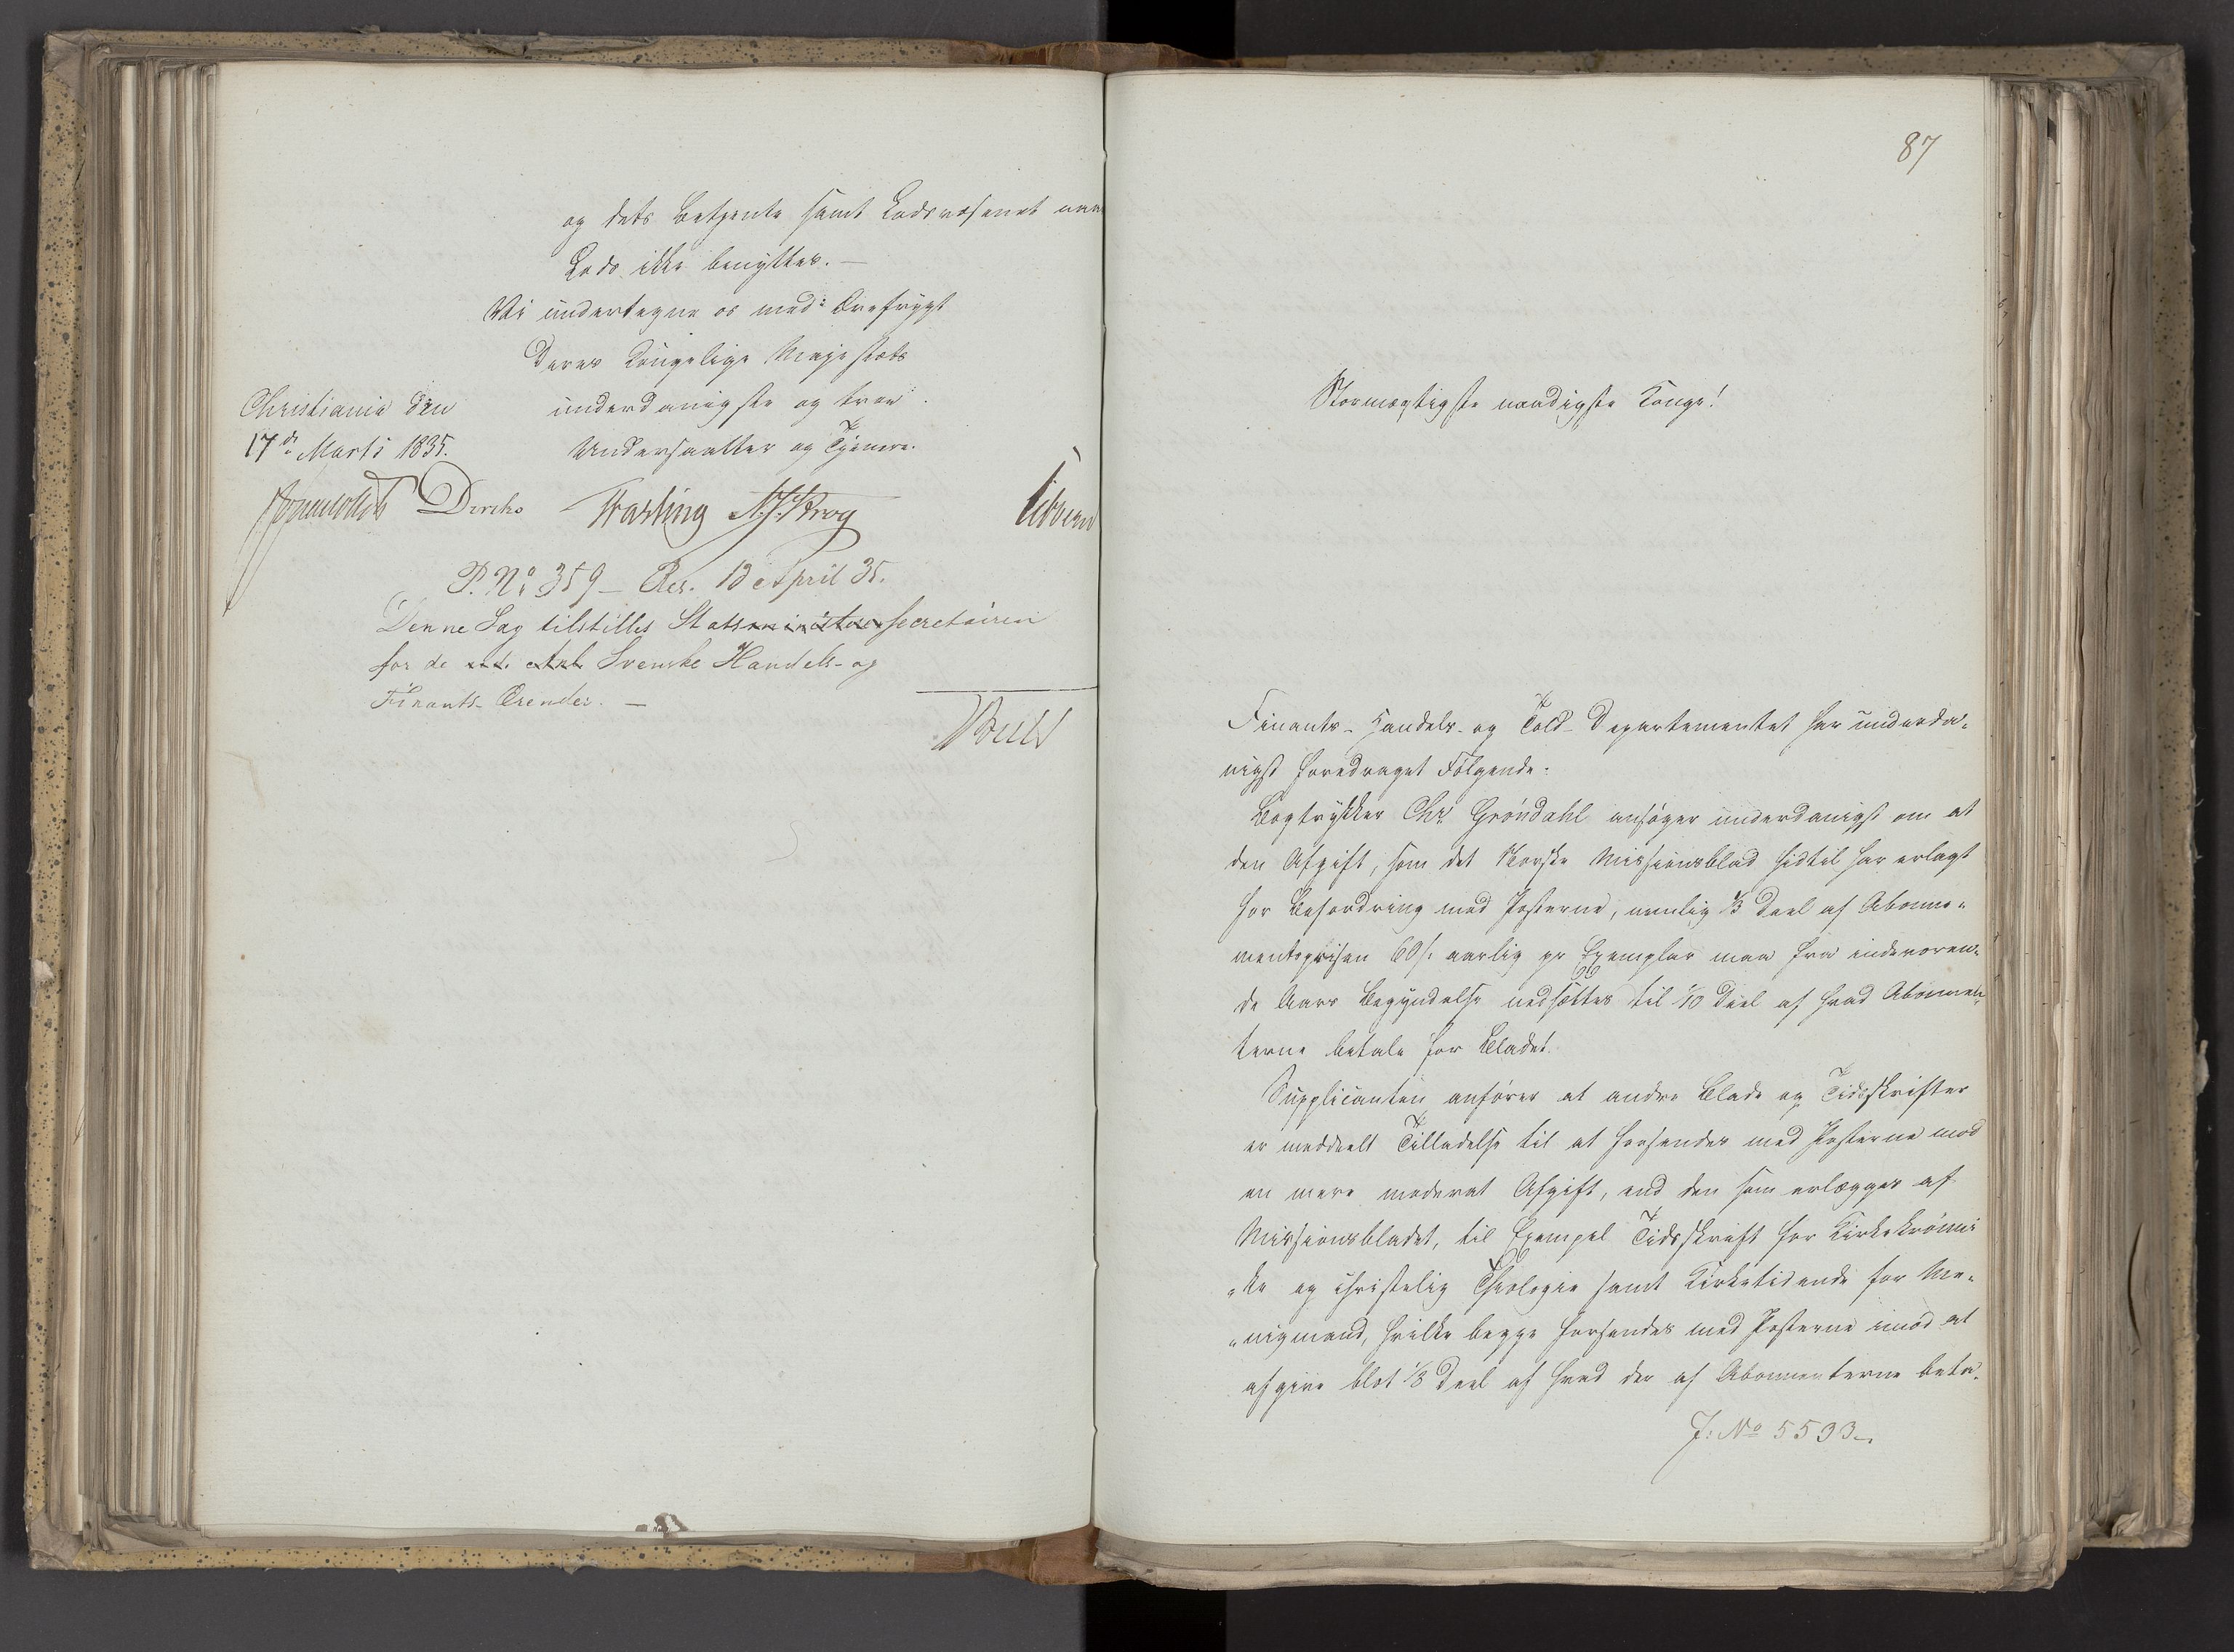 og dets Betjente samt Lodsvæsenet naar
Lods ikke benyttes. —
Vi undertegne os med: Ærefrygt
Deres Kongelige Majestæts
Christiania den
17de Marts 1835.
underdanigste og troe
Undersaatter og Tjenere.
Diriks Fasting N. J. Krog
P. No 359 – Res. 13 April 35.
Denne Sag tilstilles Statsminister secretairen
for de Svenske Handels- og
Finants-Ærender. —
87
Stormægtigste naadigste Konge!
Finants- Handels- og Told-Departementet har underda-
nigst foredraget Følgende:
Bogtrykker Chr. Gröndahl ansøger underdanigst om at
den Afgift, som det Norske Missionsblad hidtil har erlagt
for Befordring med Posterne, nemlig 1/3 Deel af Abonne-
mentsprisen 60 s. aarlig pr Exemplar maa fra indeværen-
de Aars Begyndelse nedsættes til 1/10 Deel af hvad Abonnen-
terne betale for Bladet.
Supplicanten anfører at andre Blade og Tidsskrifter
er meddeelt Tilladelse til at forsendes med Posterne mod
en mere moderat Afgift, end den som erlægges af
Missionsbladet, til Exempel Tidsskrift for Kirkekröni
"ke og christelig Theologie samt Kirketidende for Me-
"nigmand, hvilke begge forsendes med Posterne imod at
afgive blot 1/8 Deel af hvad der af Abonnenterne beta-
J: No 5533.